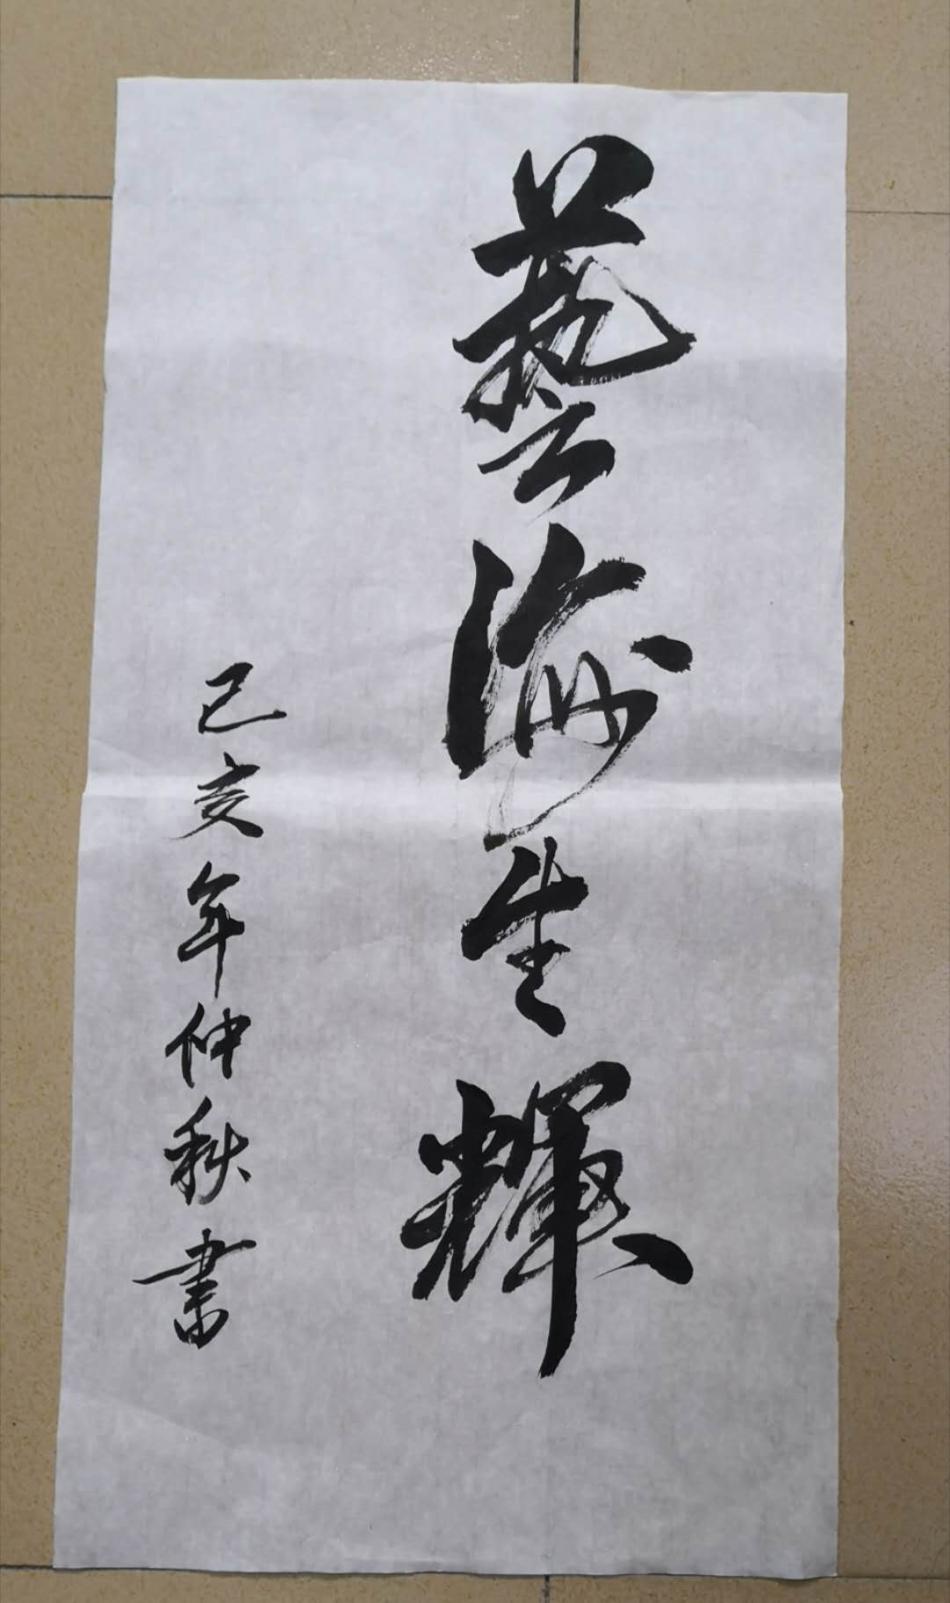 藝海生輝
己亥年仲秋書